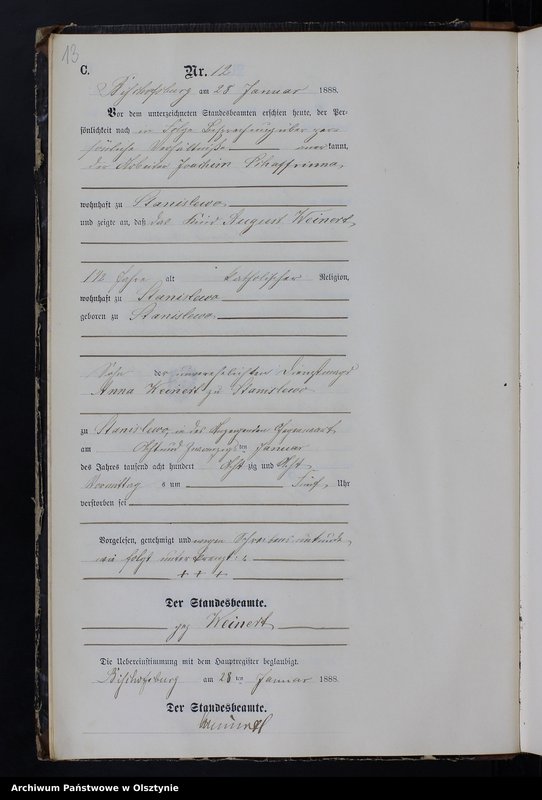 13
C.
Nr. 12
Bischofsburg am 28 Januar 1888.
Vor dem unterzeichneten Standesbeamten erschien heute, der Per-
sönlichkeit nach in Folge Besprechung über per-
sönliche Verhältnisse anerkannt,
der Joachim
wohnhaft zu Stanislewo,
und zeigte an, daß das Kind August Weinert,
1 1/2 Jahre alt katholischer Religion,
wohnhaft zu Stanislewo
geboren zu Stanislewo,
Sohn der unverehelichten Dienstmagd
Anna Weinert zu Stanislewo
zu Stanislewo, in des Anzeigenden Gegenwart
am Acht und zwanzigsten Januar
des Jahres tausend acht hundert Achtzig und Acht,
Vormittags um Fünf, Uhr
verstorben sei
Vorgelesen, genehmigt und wegen Schreibensunkunde,
wie folgt unterkreuzt:
+ + +
Der Standesbeamte.
gez Weinert
Die Uebereinstimmung mit dem Hauptregister beglaubigt.
Bischofsburg am 28ten Januar 1888.
Der Standesbeamte.
Archiwum Państwowe w Olsztynie